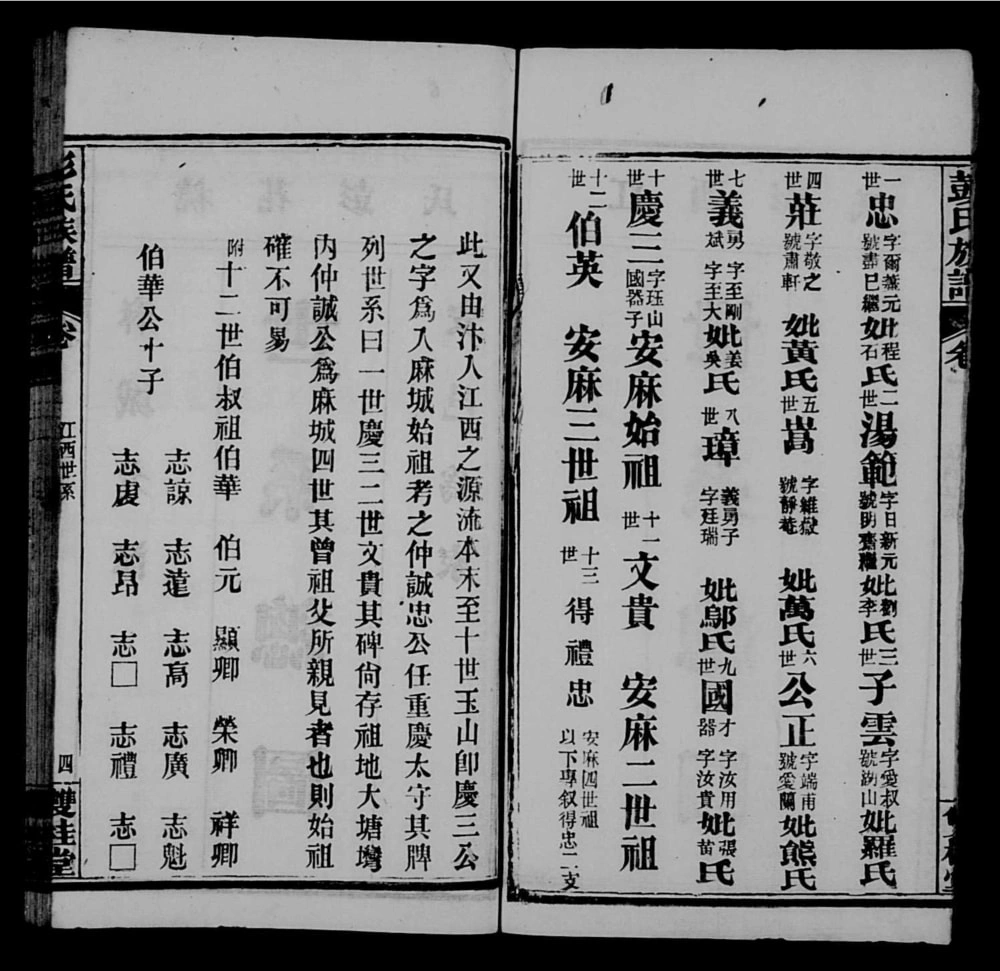 彭氏族譜 卷
一世 忠 字爾藎元妣程 號盡已繼妣石 氏 二世 湯範 字日新元妣劉 號明齋繼妣李 氏 三世 子雲 字愛叔 號湖山 妣羅氏
四世 莊 字敬之 號肅軒 妣黃氏 五世 嵩 字維嶽 號靜菴 妣萬氏 六世 公正 字端甫 號愛蘭 妣熊氏
七世 義 勇 字至剛 斌 字至大 妣 姜 吳 氏 八世 璋 義勇子 字廷瑞 妣鄔氏 九世 國 才 字汝用 器 字汝貴 妣 張 苗 氏
十世 慶三 字珏山 國器子 安麻始祖 十一世 文貴 安麻二世祖
十二世 伯英 安麻三世祖 十三世 得禮 忠 安麻四世祖 以下專叙得忠二支
此又由汴入江西之源流本末至十世玉山即慶三公
之字爲入麻城始祖考之仲誠忠公任重慶太守其牌
列世系曰一世慶三二世文貴其碑尙存祖地大塘灣
內仲誠公爲麻城四世其曾祖父所親見者也則始祖
確不可易
附十二世伯叔祖伯華 伯元 顯卿 榮卿 祥卿
志諒 志蓮 志高 志廣 志魁
伯華公十子
志虔 志昂 志□ 志禮 志□
氏族譜 卷 江西世系 四 雙桂堂